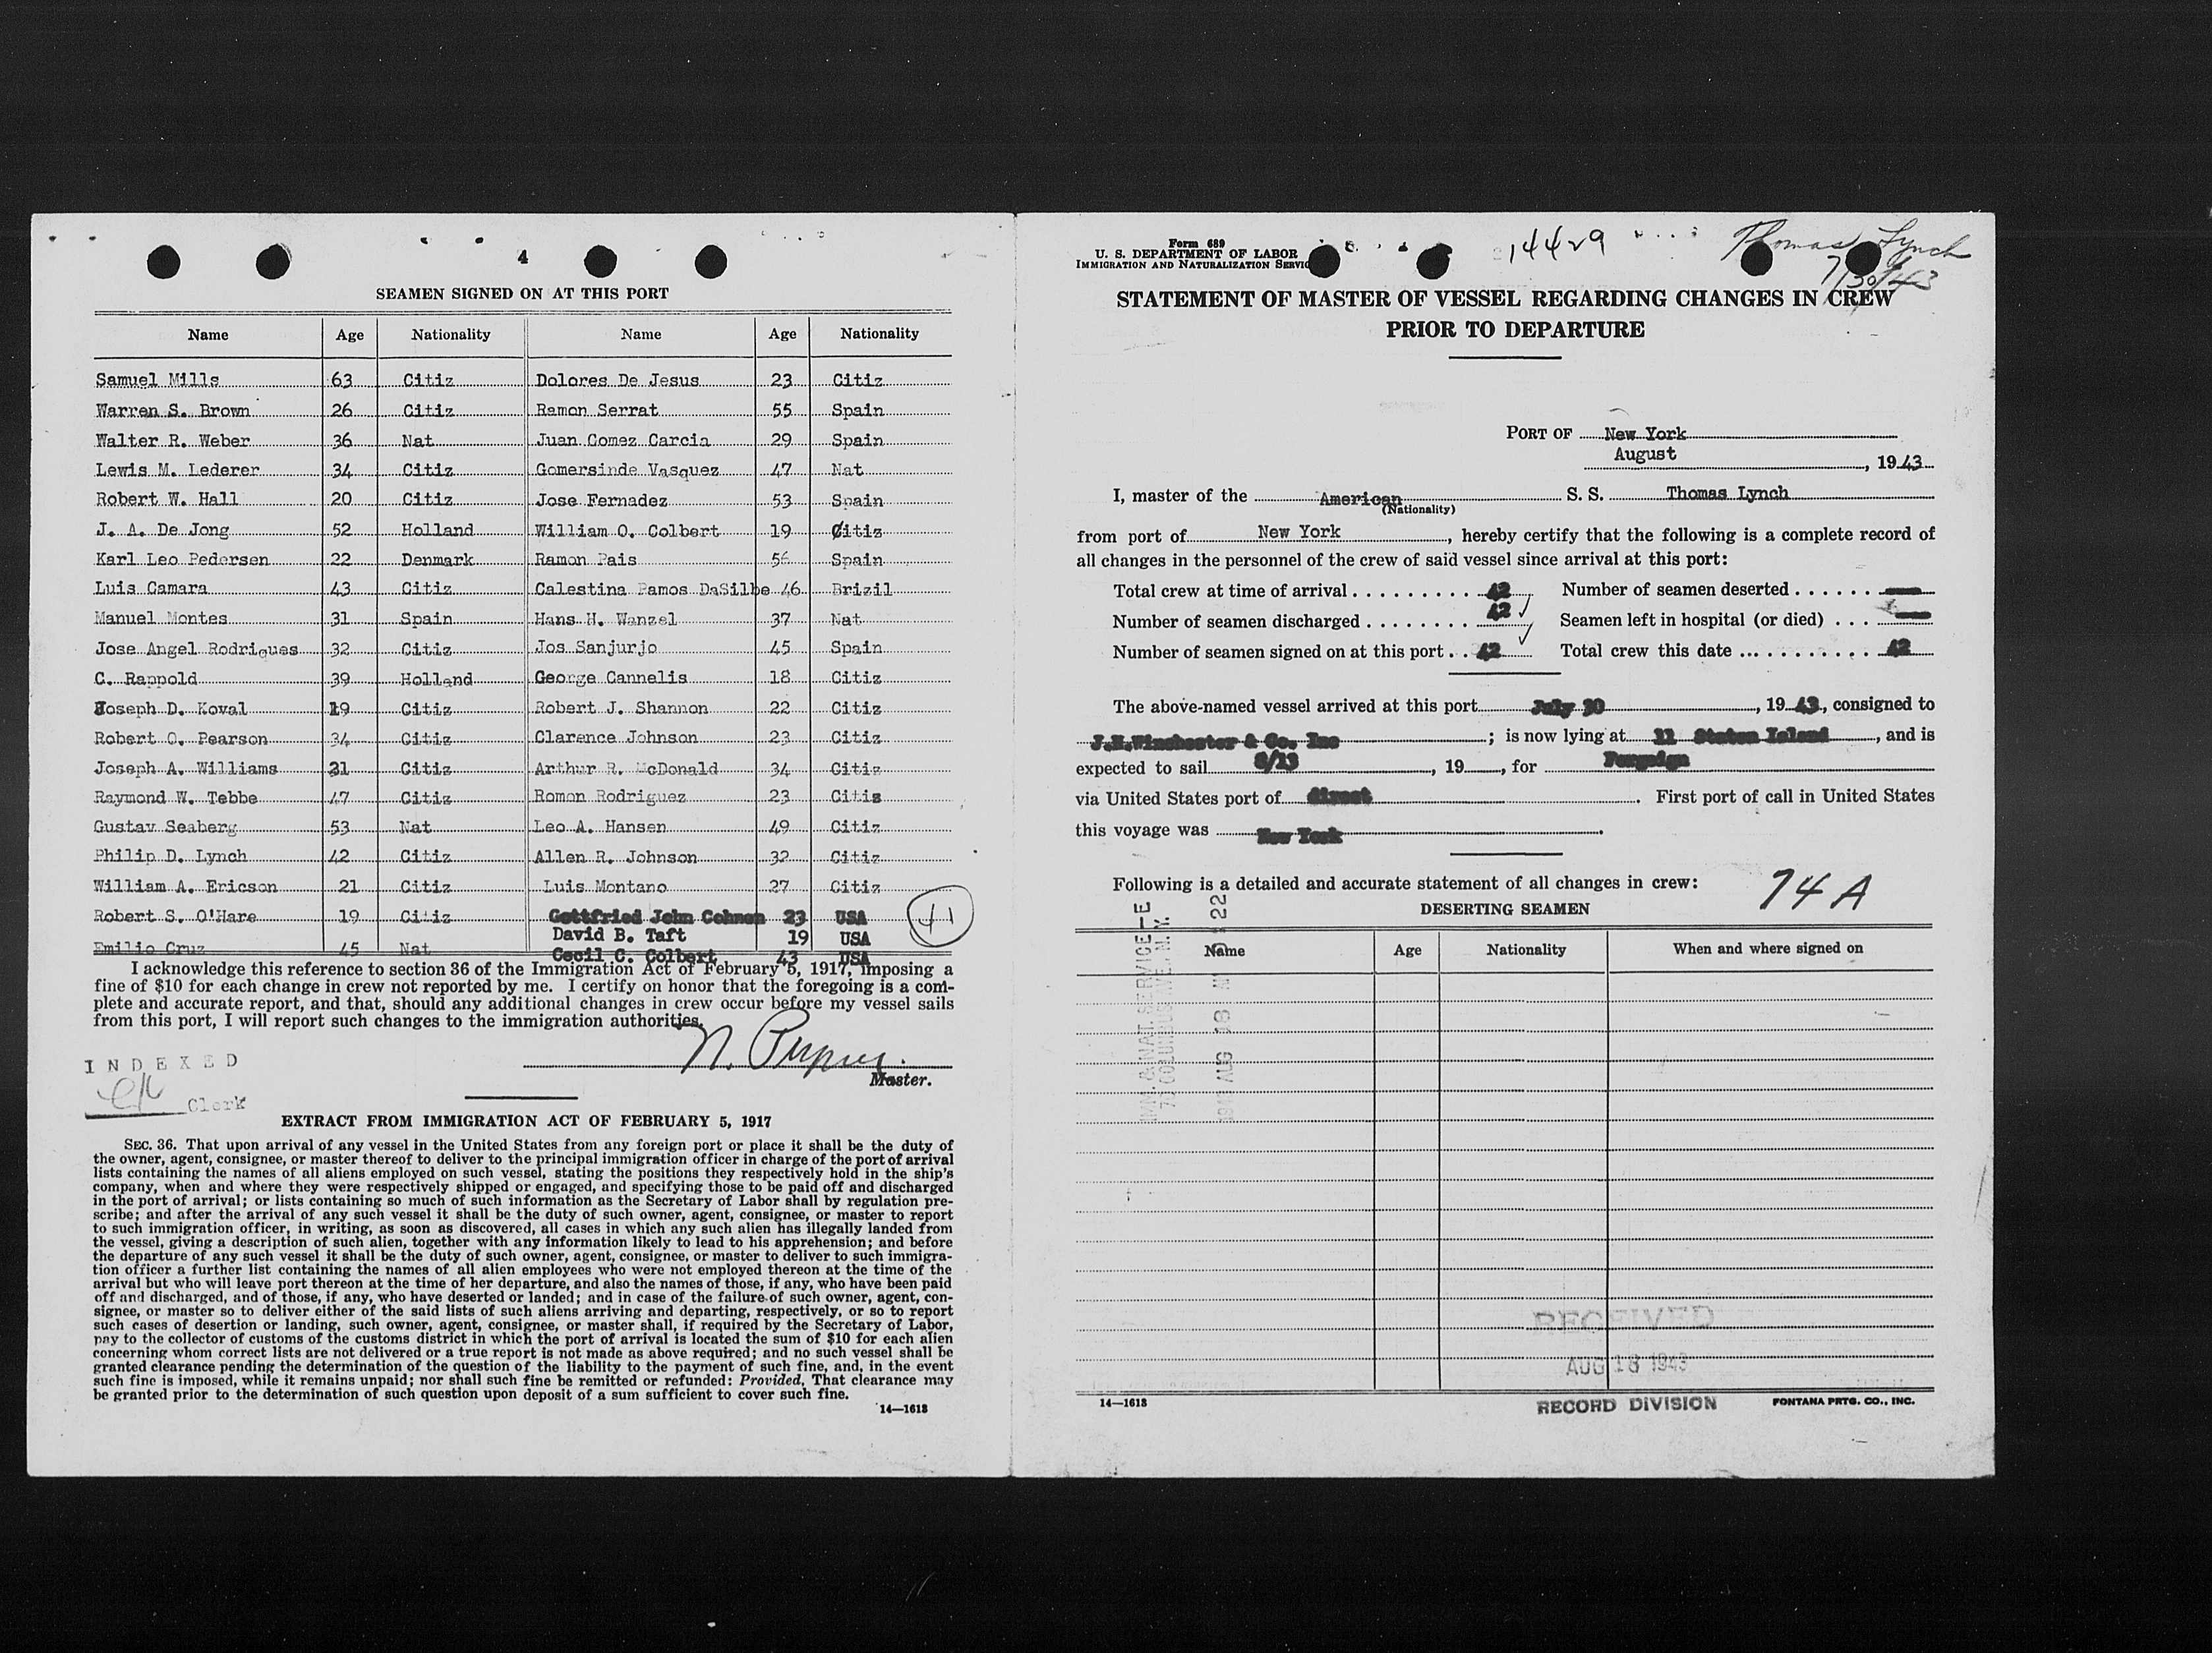 4
SEAMEN SIGNED ON AT THIS PORT
Name Age Nationality Name Age Nationality
Samuel Mills 63 Citiz Dolores De Jesus 23 Citiz
Warren S. Brown 26 Citiz Ramon Serrat 55 Spain
Walter R. Weber 36 Nat Juan Gomez Carcia 29 Spain
Lewis M. Lederer 34 Citiz Gomersinde Vasquez 47 Nat
Robert W. Hall 20 Citiz Jose Fernadez 53 Spain
J. A. De Jong 52 Holland William O. Colbert 19 Citiz
Karl Leo Pedersen 22 Denmark Ramon Pais 56 Spain
Luis Camara 43 Citiz Calestina Ramos DaSilbe 46 Brizil
Manuel Montes 31 Spain Hans H. Wanzel 37 Nat
Jose Angel Rodriques 32 Citiz Jos Sanjurjo 45 Spain
C. Rappold 39 Holland George Cannelis 18 Citiz
Joseph D. Koval 19 Citiz Robert J. Shannon 22 Citiz
Robert O. Pearson 34 Citiz Clarence Johnson 23 Citiz
Joseph A. Williams 31 Citiz Arthur R. McDonald 34 Citiz
Raymond W. Tebbe 47 Citiz Romon Rodriguez 23 Citis
Gustav Seaberg 53 Nat Leo A. Hansen 49 Citiz
Philip D. Lynch 42 Citiz Allen R. Johnson 32 Citiz
William A. Ericson 21 Citiz Luis Montano 27 Citiz
Robert S. O'Hare 19 Citiz Gottfried John Cohnen 23 USA 41
David B. Taft 19 USA
Emilio Cruz 45 Nat Cecil C. Colbert 43 USA
I acknowledge this reference to section 36 of the Immigration Act of February 5, 1917, imposing a
fine of $10 for each change in crew not reported by me. I certify on honor that the foregoing is a com-
plete and accurate report, and that, should any additional changes in crew occur before my vessel sails
from this port, I will report such changes to the immigration authorities.
N.
Master.
INDEXED
Clerk
EXTRACT FROM IMMIGRATION ACT OF FEBRUARY 5, 1917
SEC. 36. That upon arrival of any vessel in the United States from any foreign port or place it shall be the duty of
the owner, agent, consignee, or master thereof to deliver to the principal immigration officer in charge of the port of arrival
lists containing the names of all aliens employed on such vessel, stating the positions they respectively hold in the ship's
company, when and where they were respectively shipped or engaged, and specifying those to be paid off and discharged
in the port of arrival; or lists containing so much of such information as the Secretary of Labor shall by regulation pre-
scribe; and after the arrival of any such vessel it shall be the duty of such owner, agent, consignee, or master to report
to such immigration officer, in writing, as soon as discovered, all cases in which any such alien has illegally landed from
the vessel, giving a description of such alien, together with any information likely to lead to his apprehension; and before
the departure of any such vessel it shall be the duty of such owner, agent, consignee, or master to deliver to such immigra-
tion officer a further list containing the names of all alien employees who were not employed thereon at the time of the
arrival but who will leave port thereon at the time of her departure, and also the names of those, if any, who have been paid
off and discharged, and of those, if any, who have deserted or landed; and in case of the failure of such owner, agent, con-
signee, or master so to deliver either of the said lists of such aliens arriving and departing, respectively, or so to report
such cases of desertion or landing, such owner, agent, consignee, or master shall, if required by the Secretary of Labor,
pay to the collector of customs of the customs district in which the port of arrival is located the sum of $10 for each alien
concerning whom correct lists are not delivered or a true report is not made as above required; and no such vessel shall be
granted clearance pending the determination of the question of the liability to the payment of such fine, and, in the event
such fine is imposed, while it remains unpaid; nor shall such fine be remitted or refunded: Provided, That clearance may
be granted prior to the determination of such question upon deposit of a sum sufficient to cover such fine.
14—1613
Form 689
U. S. DEPARTMENT OF LABOR
IMMIGRATION AND NATURALIZATION SERVIC
14429
Thomas Lynch
7/30/43
STATEMENT OF MASTER OF VESSEL REGARDING CHANGES IN CREW
PRIOR TO DEPARTURE
PORT OF New York
August, 1943
I, master of the American S. S. Thomas Lynch
(Nationality)
from port of New York, hereby certify that the following is a complete record of
all changes in the personnel of the crew of said vessel since arrival at this port:
Total crew at time of arrival 42 Number of seamen deserted —
Number of seamen discharged 42 ✓ Seamen left in hospital (or died) —
Number of seamen signed on at this port 42 ✓ Total crew this date 42
The above-named vessel arrived at this port July 30, 1943, consigned to
J.H.Winchester & Co. Inc; is now lying at 11 Staten Island, and is
expected to sail 8/13, 19, for Forgeign
via United States port of direct. First port of call in United States
this voyage was New York.
Following is a detailed and accurate statement of all changes in crew:
74A
DESERTING SEAMEN
Name Age Nationality When and where signed on
AUG 18
RECEIVED
AUG 18 1943
RECORD DIVISION
14—1613
FONTANA PRTG. CO., INC.